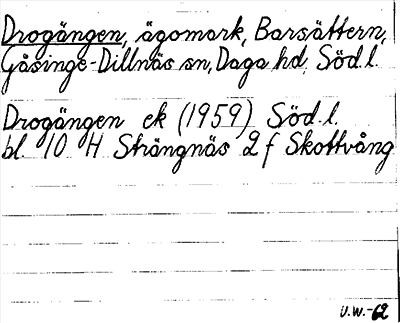 Drogängen, ägomark, Barsättern,
Gåsinge-Dillnäs sn, Daga hd, Söd.l.
Drogängen ek (1959) Söd.l.
bl. 10 H Strängnäs 2 f Skottvång
U.W.-62